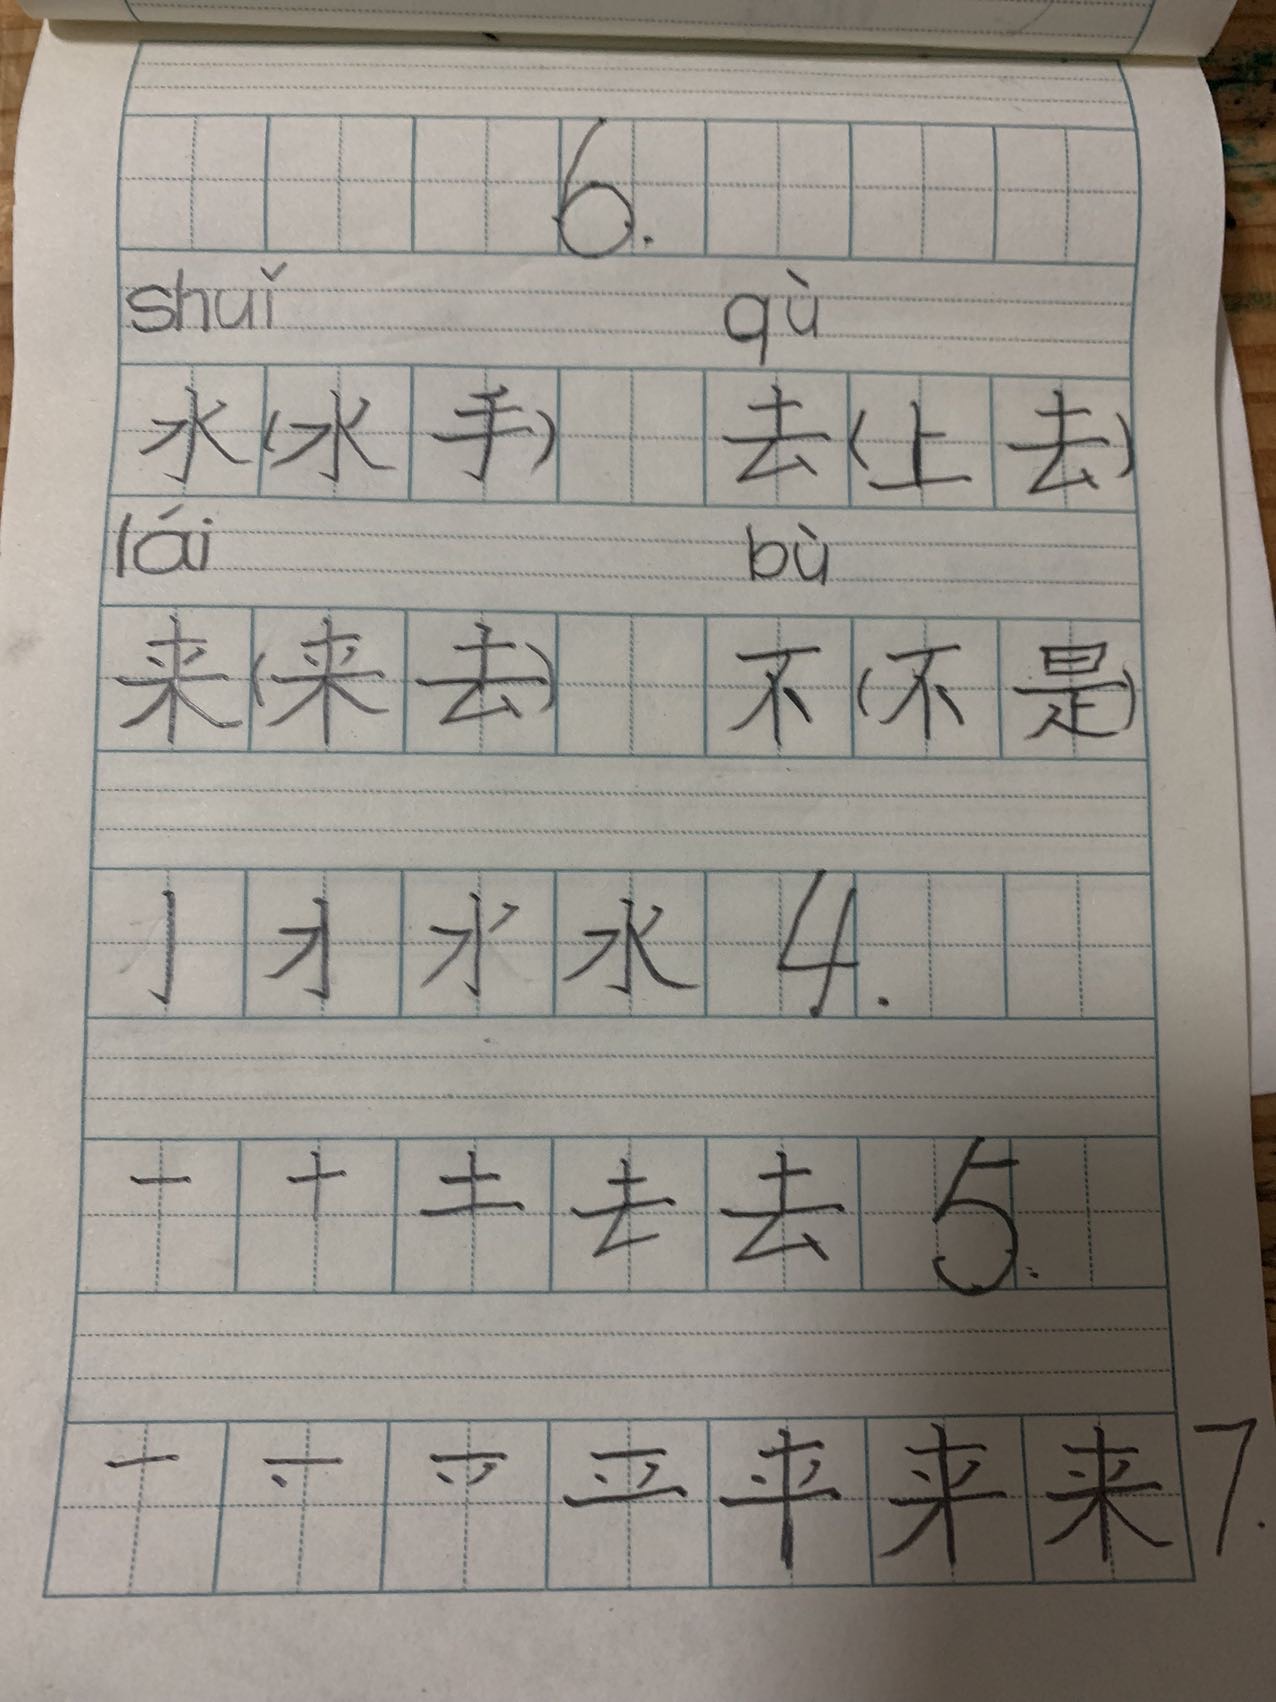 6.
shuǐ qù
水(水手) 去(上去)
lái bù
来(来去) 不(不是)
亅 水 4.
一 十 土 去 5.
一 平 来 来 7.